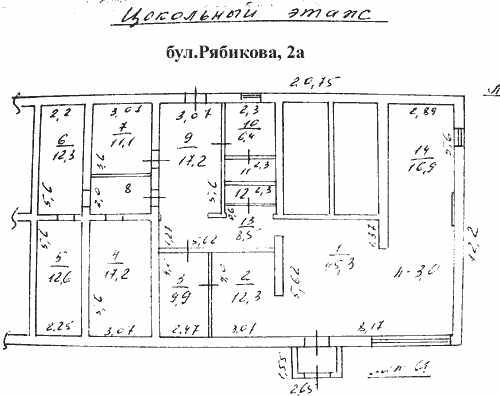 Цокольный этаж
бул.Рябикова, 2а
20,75
2,2
3,07
3,07
2,3
2,89
6
12,3
7
11,1
9
17,2
10
6,4
14
16,9
5,6
3,6
11
2,3
2,0
8
5,6
12
2,3
13
8,5
1,21
5,62
1,37
12,2
5
12,6
4
17,2
1
45,3
h-3,0
5,6
5,6
3
9,9
2
12,3
5,62
2,25
3,07
2,47
3,07
8,17
1,55
2,65